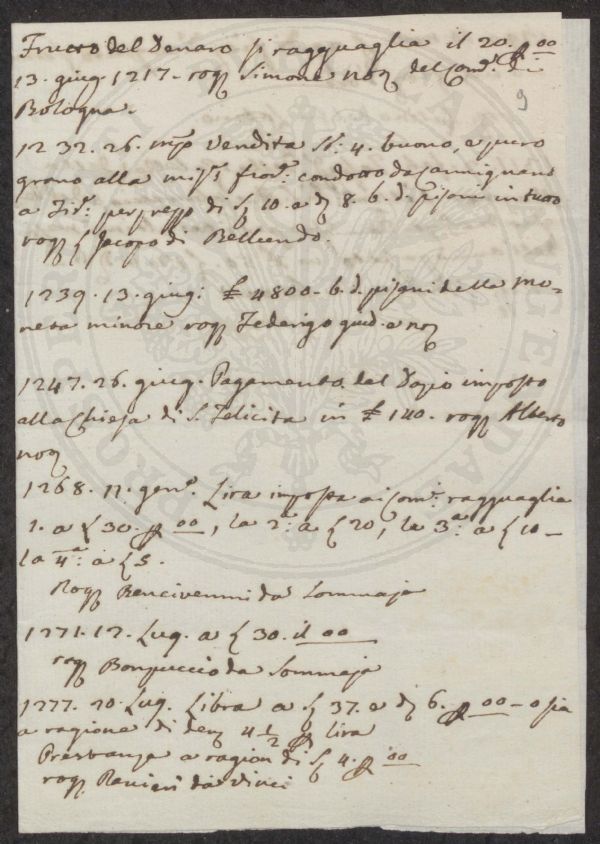 Frutto del Denaro si ragguaglia il 20. p 00
13. giug. 1217. rog. Simone not. del Com.e di
Bologna.
9
1232. 26. Vendita St: 4. buono, e puro
grano alla mis. fior: condotto da
a Fir: per prezzo di S 10. e d 8. b. d. pisani in tutto
rog. Jacopo di Belliendo.
1239. 13. giug: £ 4800. b. d. pisani della mo-
neta minore rog. Federigo not
1247. 26. giug. Pagamento del Dazio imposto
alla Chiesa di S. Felicita in £ 140. rog. Alberto
not
1268. 11. gen. Lira imposta ai Com: ragguaglia
1. a S 30. p 00, la 2.a a S 20, la 3.a a S 10 -
la 4.a a S 5.
Rog. Bencivenni da Sommaja
1271. 12. Lug. a S 30. il 00
rog. Bonpuccio da Sommaja
1277. 20. Lug. Libra a S 37. e d 6. p 00 - o sia
a ragione di den 4 1/2 p lira
Prestanza a ragion di S 4. p 00
rog. Ranieri da Vinci